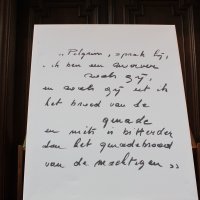 „Pelgrim, sprak hij,
ik ben een zwerver
zoals gij,
en zoals gij eet ik
het brood van de
genade
en niets is bitterder
dan het genadebrood
van de machtigen »